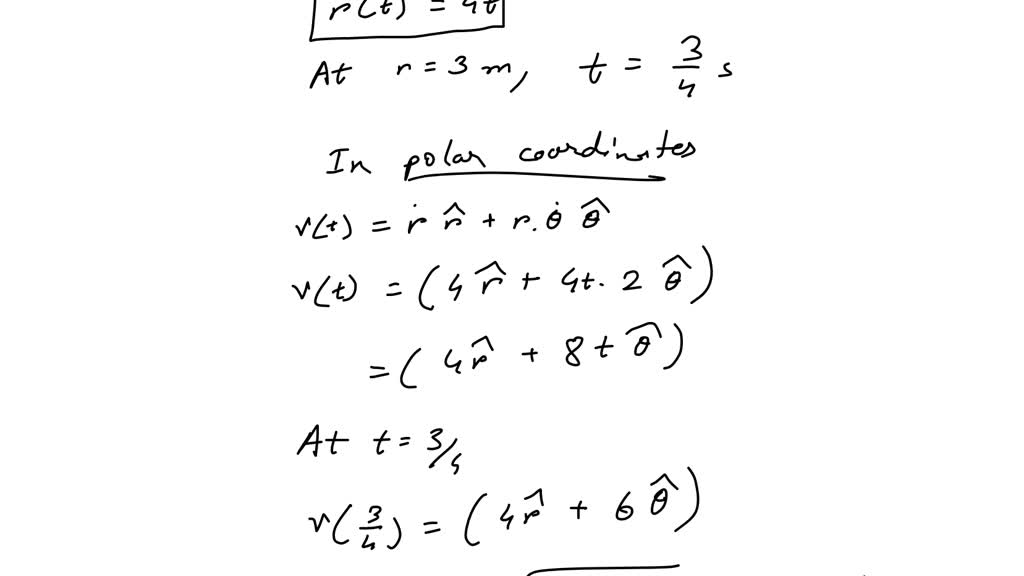 r(t) = 4t
At r = 3 m, t = 3/4 s
In polar coordinates
v(t) = ṙ r̂ + r. θ̇ θ̂
v(t) = (4 r̂ + 4t. 2 θ̂)
= (4 r̂ + 8 t θ̂)
At t = 3/4
v(3/4) = (4 r̂ + 6 θ̂)